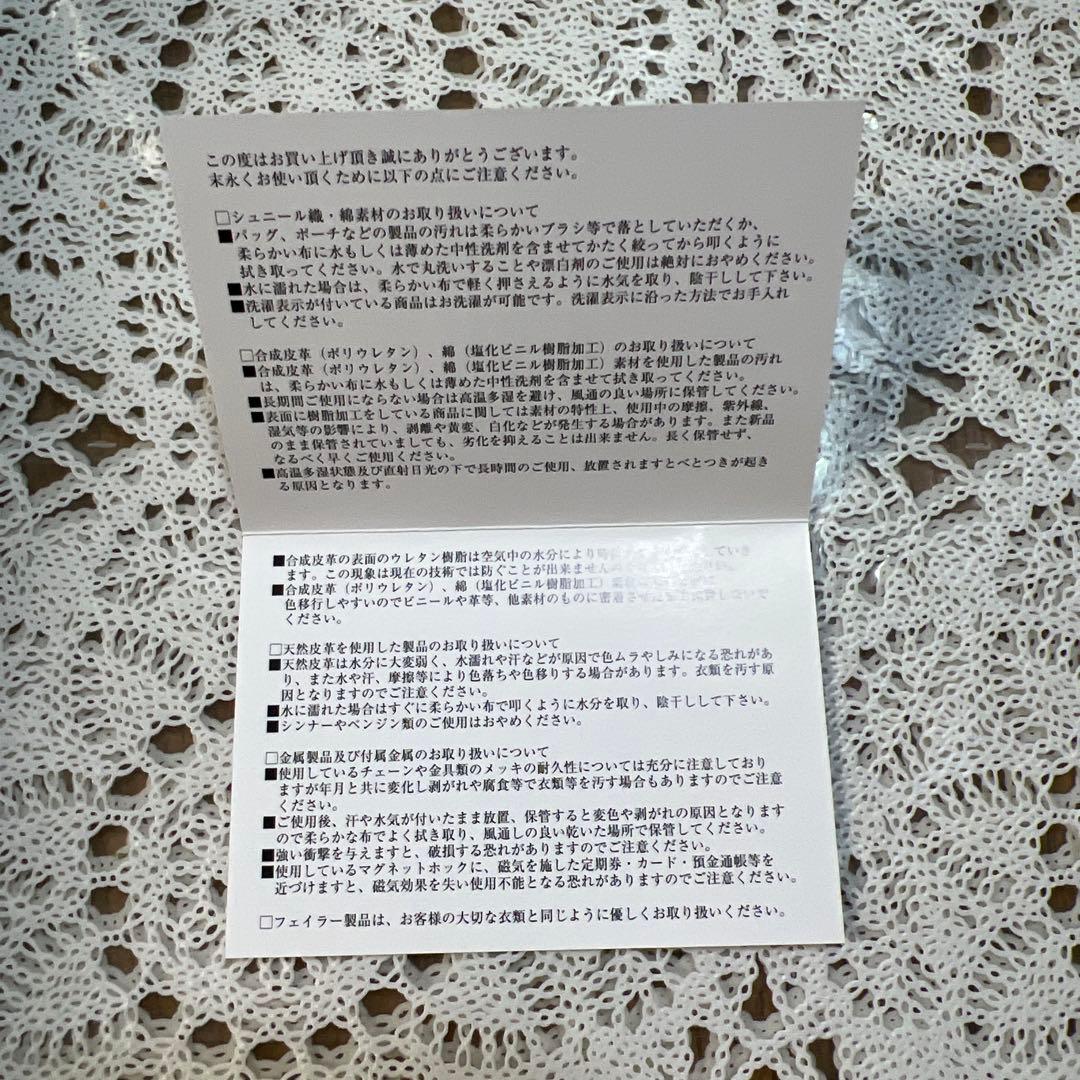 この度はお買い上げ頂き誠にありがとうございます。
末永くお使い頂くために以下の点にご注意ください。
□シュニール織・綿素材のお取り扱いについて
■バッグ、ポーチなどの製品の汚れは柔らかいブラシ等で落としていただくか、
柔らかい布に水もしくは薄めた中性洗剤を含ませてかたく絞ってから叩くように
拭き取ってください。水で丸洗いすることや漂白剤のご使用は絶対におやめください。
■水に濡れた場合は、柔らかい布で軽く押さえるように水気を取り、陰干しして下さい。
■洗濯表示が付いている商品はお洗濯が可能です。洗濯表示に沿った方法でお手入れ
してください。
□合成皮革（ポリウレタン）、綿（塩化ビニル樹脂加工）のお取り扱いについて
■合成皮革（ポリウレタン）、綿（塩化ビニル樹脂加工）素材を使用した製品の汚れ
は、柔らかい布に水もしくは薄めた中性洗剤を含ませて拭き取ってください。
■長期間ご使用にならない場合は高温多湿を避け、風通の良い場所に保管してください。
■表面に樹脂加工をしている商品に関しては素材の特性上、使用中の摩擦、紫外線、
湿気等の影響により、剥離や黄変、白化などが発生する場合があります。また新品
のまま保管されていましても、劣化を抑えることは出来ません。長く保管せず、
なるべく早くご使用ください。
■高温多湿状態及び直射日光の下で長時間のご使用、放置されますとべとつきが起き
る原因となります。
■合成皮革の表面のウレタン樹脂は空気中の水分により時 していき
ます。この現象は現在の技術では防ぐことが出来ません
■合成皮革（ポリウレタン）、綿（塩化ビニル樹脂加工）
色移行しやすいのでビニールや革等、他素材のものに密着させ ないで
ください。
□天然皮革を使用した製品のお取り扱いについて
■天然皮革は水分に大変弱く、水濡れや汗などが原因で色ムラやしみになる恐れがあ
り、また水や汗、摩擦等により色落ちや色移りする場合があります。衣類を汚す原
因となりますのでご注意ください。
■水に濡れた場合はすぐに柔らかい布で叩くように水分を取り、陰干しして下さい。
■シンナーやベンジン類のご使用はおやめください。
□金属製品及び付属金属のお取り扱いについて
■使用しているチェーンや金具類のメッキの耐久性については充分に注意しており
ますが年月と共に変化し剥がれや腐食等で衣類等を汚す場合もありますのでご注意
ください。
■ご使用後、汗や水気が付いたまま放置、保管すると変色や剥がれの原因となります
ので柔らかな布でよく拭き取り、風通しの良い乾いた場所で保管してください。
■強い衝撃を与えますと、破損する恐れがありますのでご注意ください。
■使用しているマグネットホックに、磁気を施した定期券・カード・預金通帳等を
近づけますと、磁気効果を失い使用不能となる恐れがありますのでご注意ください。
□フェイラー製品は、お客様の大切な衣類と同じように優しくお取り扱いください。